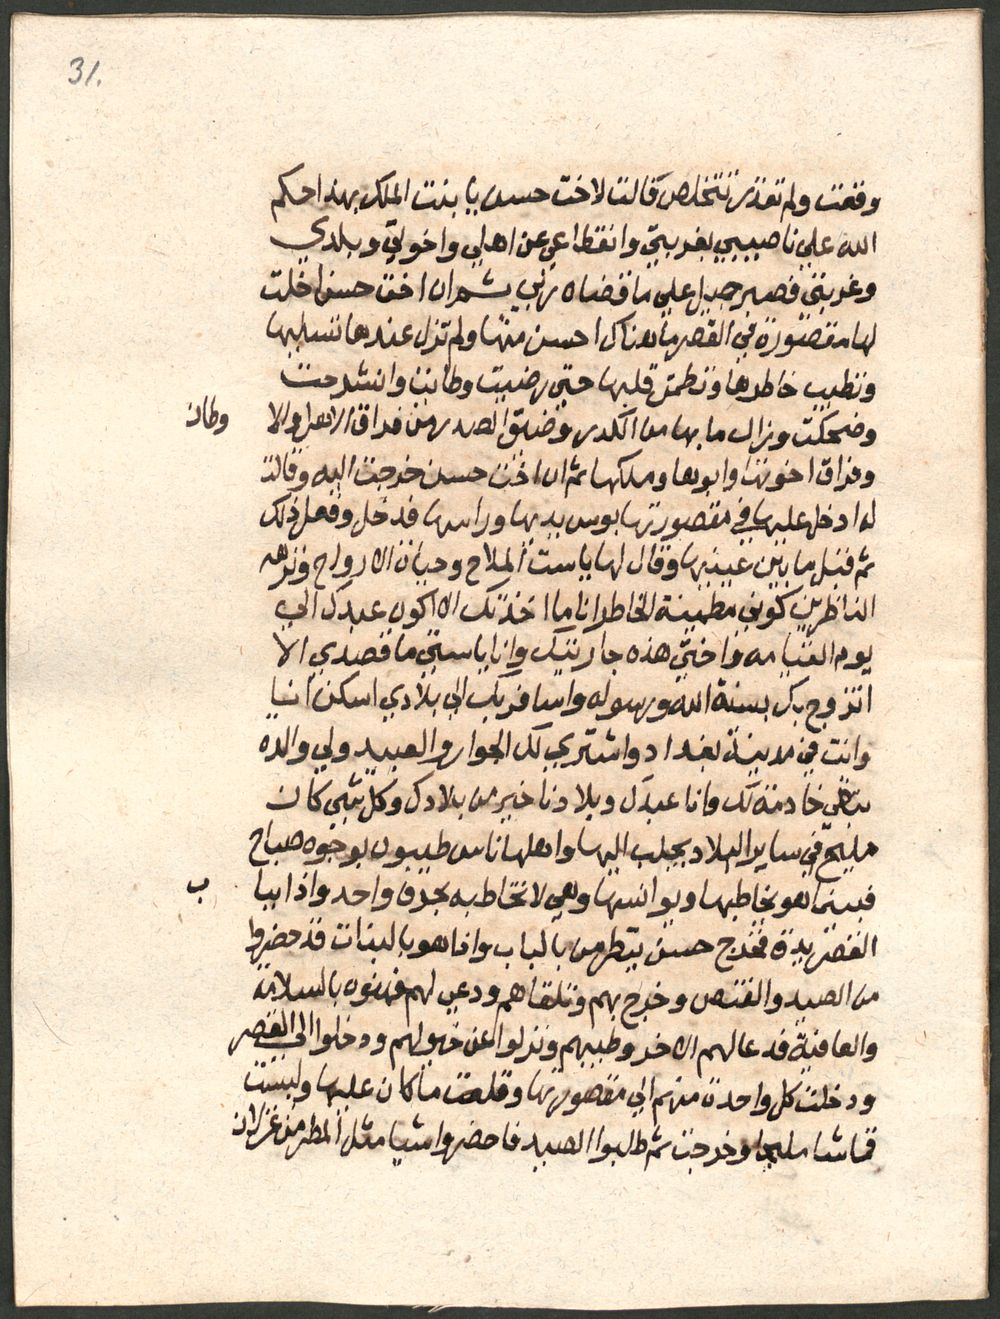 31.
وقعت ولم تقدر تتخلص قالت لاخت حسن يا بنت الملك بهذا حكم
الله علي ناصيبي بغربتي وانقطاعي عن اهلي واخوتي وبلدي
وغربتي فصبر جميل علي ما قضاه ربي ثم ان اخت حسن اخلت
لها مقصورة في القصر ما هناك احسن منها ولم تزل عندها تسليها
وتطيب خاطرها وتطمن قلبها حتي رضيت وطابت وانشرحت
وضحكت وزال ما بها من الكدر وضيق الصدر من فراق الاهل والا
وطان
وفراق اخوتها وابوها وملكها ثم ان اخت حسن خرجت اليه وقالت
له ادخل عليها في مقصورتها بوس يديها وراسها فدخل وفعل ذلك
ثم قبل ما بين عينيها وقال لها يا ست الملاح وحياة الارواح ونزهه
الناظرين كوني مطمينة الخاطر انا ما اخذتك الا اكون عبدك الي
يوم القيامه واختي هذه جاريتك وانا يا ستي ما قصدي الا
اتزوج بك بسنة الله ورسوله واسافر بك الي بلادي اسكن انيا
وانت في مدينة بغداد واشتري لك الجوار والعبيد ولي والده
تبقي خادمة لك وانا عبدك وبلادنا خير من بلادك وكل شي كان
مليح في ساير البلاد يجلب اليها واهلها ناس طيبون بوجوه صباح
فبينما هو يخاطبها ويوانسها وهي لا تخاطبه بحرف واحد واذا ببا
ب
القصر يدق فخرج حسن ينظر من بالباب واذا هو بالبنات قد حضروا
من الصيد والقنص وخرج بهم وتلقاهم ودعي لهم فهنوه بالسلامة
والعافية فدعا لهم الاخر وطيبهم ونزلوا عن خيولهم ودخلوا الي القصر
ودخلت كل واحدة منهم الي مقصورتها وقلعت ما كان عليها ولبست
قماشا مليحا وخرجت ثم طلبوا الصيد فاحضروا شيا مثل المطر من غزلان